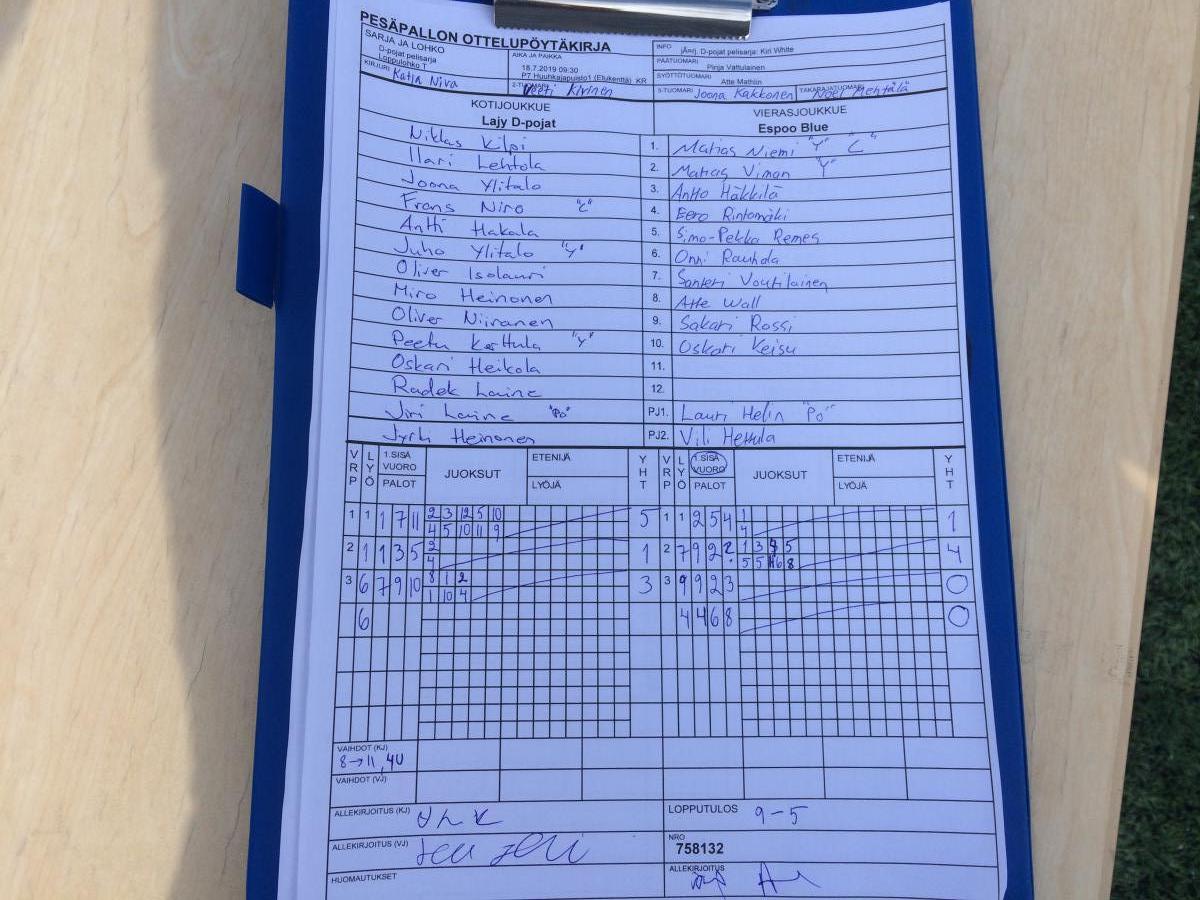 PESÄPALLON OTTELUPÖYTÄKIRJA
SARJA JA LOHKO
D-pojat pelisarja
Loppulohko T
AIKA JA PAIKKA
18.7.2019 09:30
P7 Huuhkajapuisto1 (Etukenttä) KR
INFO jÄnrj. D-pojat pelisarja: Kiri White
PÄÄTUOMARI Pinja Vattulainen
SYÖTTÖTUOMARI Atte Mathlin
KIRJURI Katja Niva
2-TUOMARI Veeti Kivinen
3-TUOMARI Joona Kakkonen
TAKARAJATUOMARI Noel Mehtälä
KOTIJOUKKUE
Lajy D-pojat
VIERASJOUKKUE
Espoo Blue
Niklas Kilpi 1. Matias Niemi "Y" "C"
Ilari Lehtola 2. Matias Viman "Y"
Joona Ylitalo 3. Antto Häkkilä
Frans Niro "C" 4. Eero Rintamäki
Antti Hakala 5. Simo-Pekka Remes
Juho Ylitalo "Y" 6. Onni Rauhala
Oliver Isolauri 7. Santeri Voutilainen
Miro Heinonen 8. Atte Wall
Oliver Niiranen 9. Sakari Rossi
Peetu Karttula "Y" 10. Oskari Keisu
Oskari Heikola 11.
Radek Laine 12.
Jiri Laine "Po" PJ1. Lauri Helin "Po"
Jyrki Heinonen PJ2. Vili Hettula
VRP LYÖ 1.SISÄ VUORO PALOT JUOKSUT ETENIJÄ LYÖJÄ YHT VRP LYÖ 1.SISÄ VUORO PALOT JUOKSUT ETENIJÄ LYÖJÄ YHT
1 1 1 7 11 2 3 12 5 10 5 1 1 2 5 4 1 1
4 5 10 11 9 4
2 1 1 3 5 2 1 2 7 9 2 2 1 3 4 5 4
4 5 5 6 8
3 6 7 9 10 8 1 2 3 3 9 9 2 3 0
1 10 4
6 4 4 6 8 0
VAIHDOT (KJ)
8→11, 4U
VAIHDOT (VJ)
ALLEKIRJOITUS (KJ)
LOPPUTULOS 9-5
ALLEKIRJOITUS (VJ)
NRO
758132
HUOMAUTUKSET
ALLEKIRJOITUS